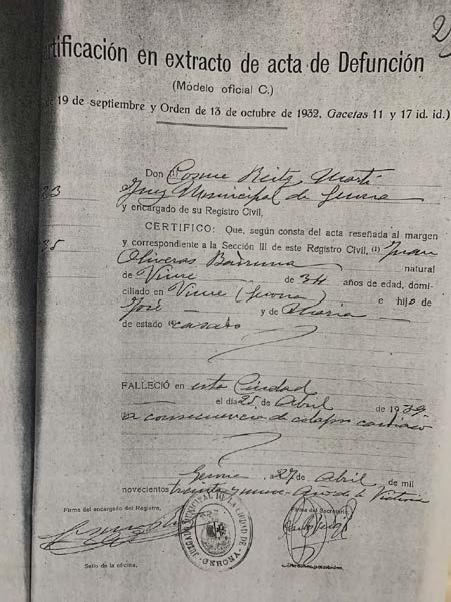 tificación en extracto de acta de Defunción
(Modelo oficial C.)
de 19 de septiembre y Orden de 13 de octubre de 1932, Gacetas 11 y 17 id. id.)
Don (1) Cosme Martí
Juez Municipal de Gerona
y encargado de su Registro Civil,
CERTIFICO: Que, según consta del acta reseñada al margen
y correspondiente a la Sección III de este Registro Civil, (1) Juan
Oliveras natural
de de 34 años de edad, domi-
ciliado en (Gerona) e hijo de
José y de María
de estado casado
FALLECIÓ en esta Ciudad
el día 25 de Abril de 1939
a consecuencia de colapso cardiaco
Gerona 27 de Abril de mil
novecientos treinta y nueve - Año de la Victoria
Firma del encargado del Registro,
Firma del Secretario
JUZGADO MUNICIPAL DE LA CIUDAD DE GERONA
Sello de la oficina.